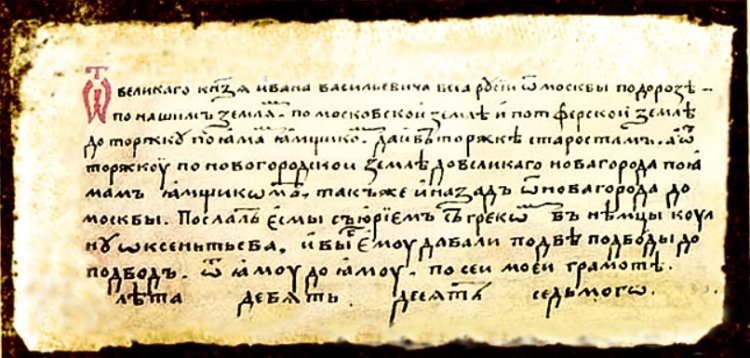 Ѿ великаго кн҃зѧ ивана васильевича всеа рꙋсїи ѿ москвы по дорозѣ –
по нашимъ землѧⷨ. по московской землѣ и по тферской землѣ
до торжкꙋ по ꙗмаⷨ ꙗмщикоⷨ. да и въ торжкѣ старостамъ. а ѿ
торжкоу по новогородской землѣ до великаго новагорода по ꙗ
мамъ ꙗмщикѡⷨ. такъже и назадъ ѿ новагорода до
москвы. Послалъ есмы съ юрїемъ съ грекѡⷨ въ нѣмцы коул
ну ѡксеньтьева, и вы бъ емоу давали по двѣ подводы до
подводъ. ѿ ꙗмоу до ꙗмоу. по сеи моеи грамотѣ.
лѣта девять десѧтъ седьмогѡ.